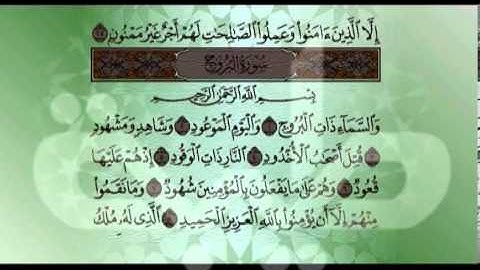 إِلَّا ٱلَّذِينَ ءَامَنُوا۟ وَعَمِلُوا۟ ٱلصَّـٰلِحَـٰتِ لَهُمْ أَجْرٌ غَيْرُ مَمْنُونٍ ٢٥
سُورَةُ البُرُوجِ
بِسْمِ ٱللَّهِ ٱلرَّحْمَـٰنِ ٱلرَّحِيمِ
وَٱلسَّمَآءِ ذَاتِ ٱلْبُرُوجِ ١ وَٱلْيَوْمِ ٱلْمَوْعُودِ ٢ وَشَاهِدٍ وَمَشْهُودٍ
٣ قُتِلَ أَصْحَـٰبُ ٱلْأُخْدُودِ ٤ ٱلنَّارِ ذَاتِ ٱلْوَقُودِ ٥ إِذْ هُمْ عَلَيْهَا
قُعُودٌ ٦ وَهُمْ عَلَىٰ مَا يَفْعَلُونَ بِٱلْمُؤْمِنِينَ شُهُودٌ ٧ وَمَا نَقَمُوا۟
مِنْهُمْ إِلَّآ أَن يُؤْمِنُوا۟ بِٱللَّهِ ٱلْعَزِيزِ ٱلْحَمِيدِ ٨ ٱلَّذِى لَهُۥ مُلْكُ